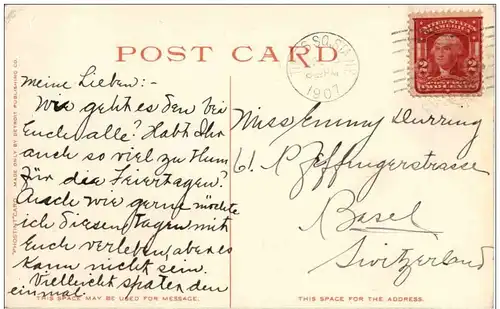 POST CARD
SQ. STA.
1907
UNITED STATES OF AMERICA
2 2
POSTAGE
TWO CENTS
"PHOSTINT" CARD MADE ONLY BY DETROIT PUBLISHING CO.
Meine Lieben:-
Wie geht es den bei
Euch alle? Habt Ihr
auch so viel zu thun
für die Feiertagen?
Auch wie gerne möchte
ich diesen tagen mit
Euch verleben, aber es
kann nicht sein.
Vielleicht später den
einmal.
THIS SPACE MAY BE USED FOR MESSAGE.
Miss Emmy Durring
61. Pfeffingerstrasse
Basel
Switzerland
THIS SPACE IS FOR THE ADDRESS.